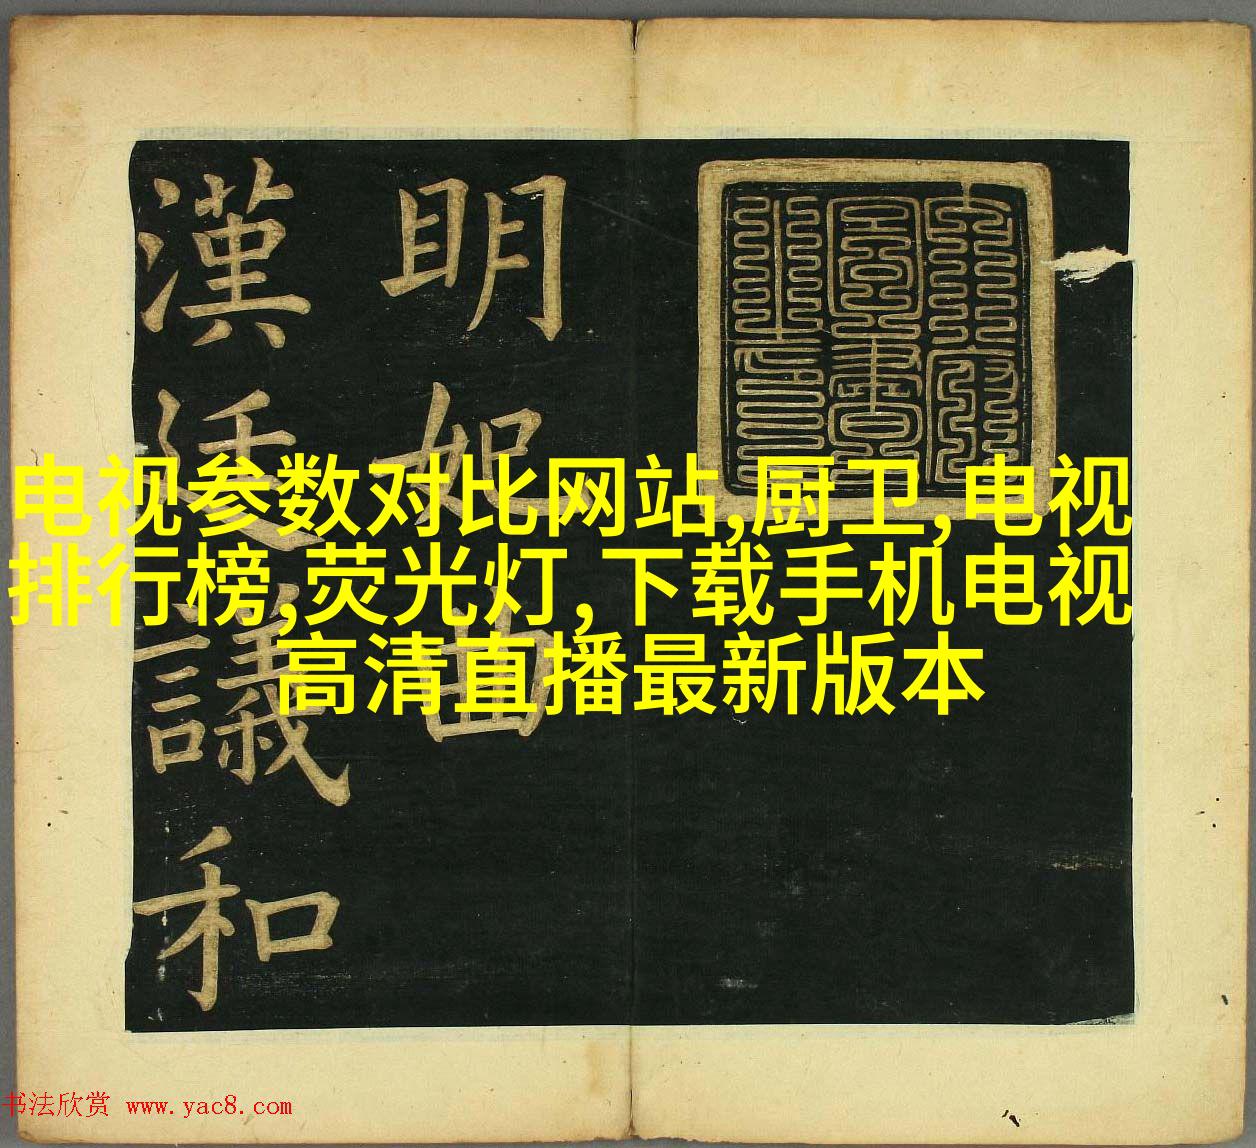 明妃曲
漢廷議和
电视参数对比网站,厨卫,电视
排行榜,荧光灯,下载手机电视
高清直播最新版本
书法欣赏 www.yac8.com